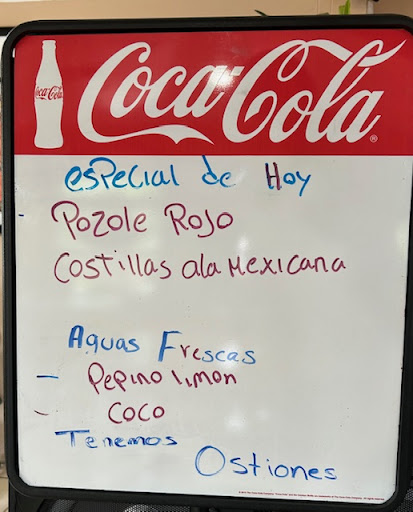 Coca-Cola
Coca-Cola
especial de Hoy
Pozole Rojo
Costillas ala Mexicana
Aguas Frescas
- Pepino limon
- coco
Tenemos
Ostiones